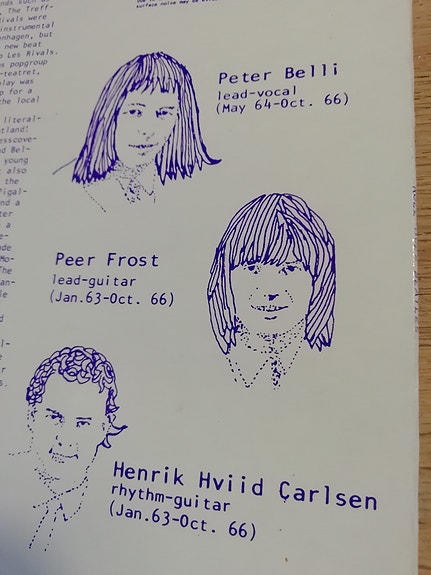 surface noise may be
The Treff-
ivals were
instrumental
nhagen, but
new beat
Les Rivals.
popgroup
-teatret,
play was
for a
the local
literal-
tland!
esscove-
nd Bel-
young
also
the
igal-
nd a
ter
a
The
an-
Peter Belli
lead-vocal
(May 64-Oct. 66)
Peer Frost
lead-guitar
(Jan.63-Oct. 66)
Henrik Hviid Carlsen
rhythm-guitar
(Jan.63-Oct. 66)